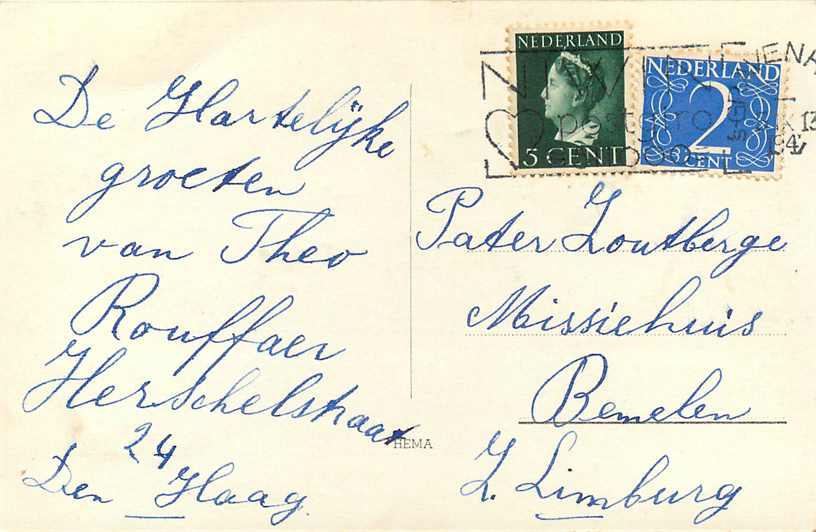 De Hartelijke
groeten
van Theo
Rouffaer
Herschelstraat
24
Den Haag
HEMA
NEDERLAND
5 CENT
NEDERLAND
2
CENT
Pater Zoutberge
Missiehuis
Bemelen
Z. Limburg